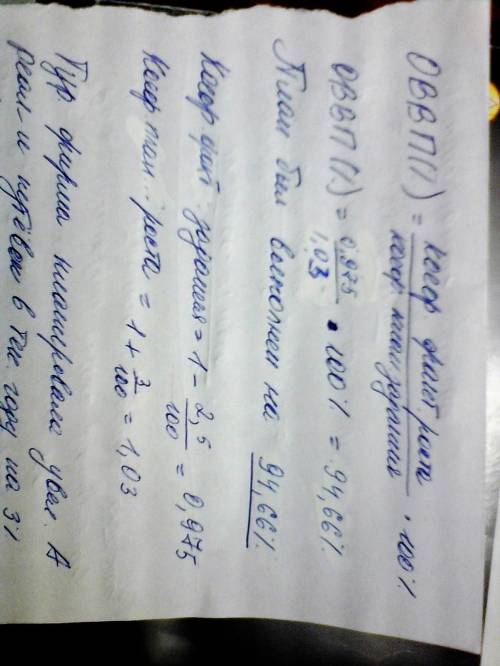 ОВВП(%) = коеф факт роста / коеф плат задания . 100%
ОВВП(%) = 0,975 / 1,03 . 100% = 94,66%
План был выполнен на 94,66%.
Коеф факт. задания = 1 - 2,5 / 100 = 0,975
Коеф план. роста = 1 + 3 / 100 = 1,03
Тур фирма планировала увел. А
реал-и путёвок в тек. году на 3%